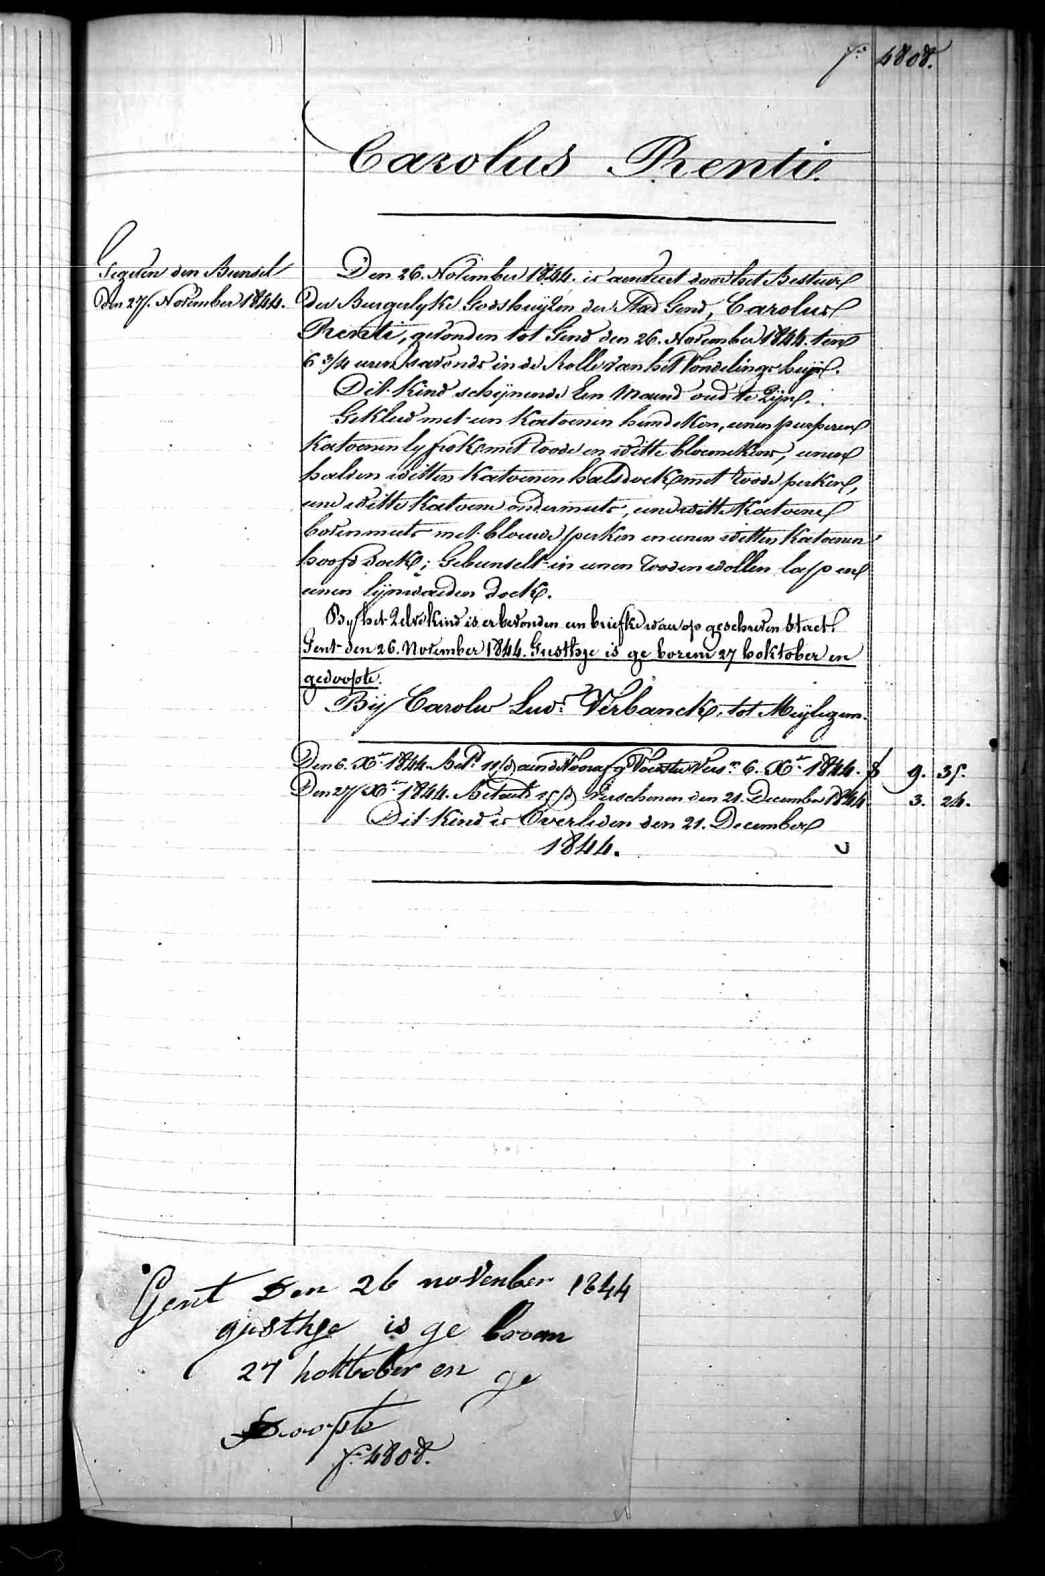 f.° 4808.
Carolus Rentie.
Gegeven den Bunsel
den 27. November 1844.
Den 26. November 1844. is aenveert door het Bestuur
der Burgerlyke Godshuyzen der Stad Gend, Carolus
Rentie, gevonden tot Gend den 26. November 1844. ten
6 3/4 uren savonds in de Rolle van het Vondelinge huys.
Dit Kind schynende Een Maend oud te Zyn.
Gekleed met een Katoenen hemdeken, eenen purperen
Katoenen lyfrok met roode en witte bloemekens, eenen
halven witten Katoenen halsdoek met roode perken,
eene witte Katoene ondermuts, eene witte Katoene
bovenmuts met blauwe perken en eenen witten Katoenen
hoofd doek; Gebunselt in eenen rooden wollen lap en
eenen lynwaeden doek.
By het Zelve Kind is er bevonden een briefke waer op geschreven staet.
Gent den 26. November 1844. Gusthge is ge boren 27 hoktober en
gedoopte.
By Carolus Lud. Verbanck, tot Meylegem.
Den 6. Xr 1844. 6. Xr 1844. f 9. 35.
Den 27 Xr 1844. Betaelt Verschenen den 21. December 1844 3. 24.
Dit Kind is Overleden den 21. December
1844.
Gent Den 26 november 1844
gusthge is ge boren
27 hoktober en ge
Doopte
f.° 4808.